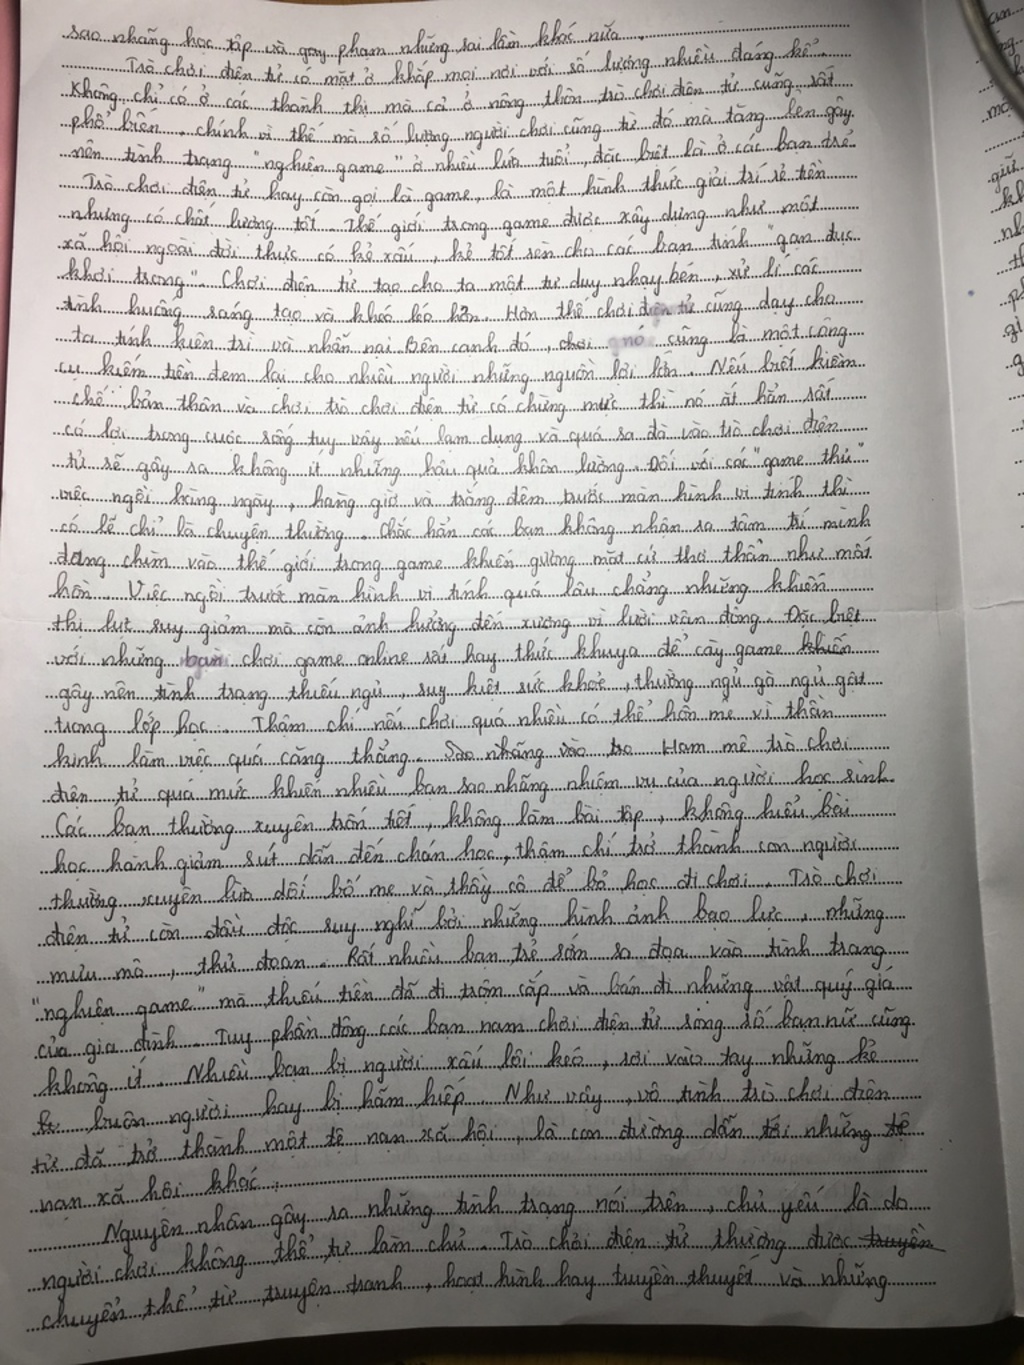 sao nhãng học tập và gây phạm những sai lầm khác nữa.
Trò chơi điện tử có mặt ở khắp mọi nơi với số lượng nhiều đáng kể.
Không chỉ có ở các thành thị mà cả ở nông thôn trò chơi điện tử cũng rất
phổ biến, chính vì thế mà số lượng người chơi cũng từ đó mà tăng lên gây
nên tình trạng "nghiện game" ở nhiều lứa tuổi, đặc biệt là ở các bạn trẻ.
Trò chơi điện tử hay còn gọi là game, là một hình thức giải trí rẻ tiền
nhưng có chất lượng tốt. Thế giới trong game được xây dựng như một
xã hội ngoài đời thực có kẻ xấu, kẻ tốt rèn cho các bạn tính "gạn đục
khơi trong". Chơi điện tử tạo cho ta một tư duy nhạy bén, xử lí các
tình huống sáng tạo và khéo léo hơn. Hơn thế chơi điện tử cũng dạy cho
ta tính kiên trì và nhẫn nại. Bên cạnh đó, chơi nó cũng là một công
cụ kiếm tiền đem lại cho nhiều người những nguồn lợi lớn. Nếu biết kiềm
chế bản thân và chơi trò chơi điện tử có chừng mực thì nó ắt hẳn rất
có lợi trong cuộc sống tuy vậy nếu lạm dụng và quá sa đà vào trò chơi điện
tử sẽ gây ra không ít những hậu quả khôn lường. Đối với các "game thủ"
việc ngồi hàng ngày, hàng giờ và trắng đêm trước màn hình vi tính thì
có lẽ chỉ là chuyện thường. Chắc hẳn các bạn không nhận ra tâm trí mình
đang chìm vào thế giới trong game khiến gương mặt cứ thơ thẩn như mất
hồn. Việc ngồi trước màn hình vi tính quá lâu chẳng những khiến
thị lực suy giảm mà còn ảnh hưởng đến xương vì lười vận động. Đặc biệt
với những bạn chơi game online rất hay thức khuya để cày game khiến
gây nên tình trạng thiếu ngủ, suy kiệt sức khoẻ, thường ngủ gà ngủ gật
trong lớp học. Thậm chí nếu chơi quá nhiều có thể hôn mê vì thần
kinh làm việc quá căng thẳng. Sao nhãng vào trò Ham mê trò chơi
điện tử quá mức khiến nhiều bạn sao nhãng nhiệm vụ của người học sinh.
Các bạn thường xuyên trốn tiết, không làm bài tập, không hiểu bài
học hành giảm sút dẫn đến chán học, thậm chí trở thành con người
thường xuyên lừa dối bố mẹ và thầy cô để bỏ học đi chơi. Trò chơi
điện tử còn đầu độc suy nghĩ bởi những hình ảnh bạo lực, những
mưu mô, thủ đoạn. Rất nhiều bạn trẻ sớm sa đọa vào tình trạng
"nghiện game" mà thiếu tiền đã đi trộm cắp và bán đi những vật quý giá
của gia đình. Tuy phần đông các bạn nam chơi điện tử song số bạn nữ cũng
không ít. Nhiều bạn bị người xấu lôi kéo, rơi vào tay những kẻ
buôn người hay bị hãm hiếp. Như vậy, vô tình trò chơi điện
tử đã trở thành một tệ nạn xã hội, là con đường dẫn tới những tệ
nạn xã hội khác.
Nguyên nhân gây ra những tình trạng nói trên, chủ yếu là do
người chơi không thể tự làm chủ. Trò chơi điện tử thường được truyền
chuyển thể từ truyện tranh, hoạt hình hay truyền thuyết và những